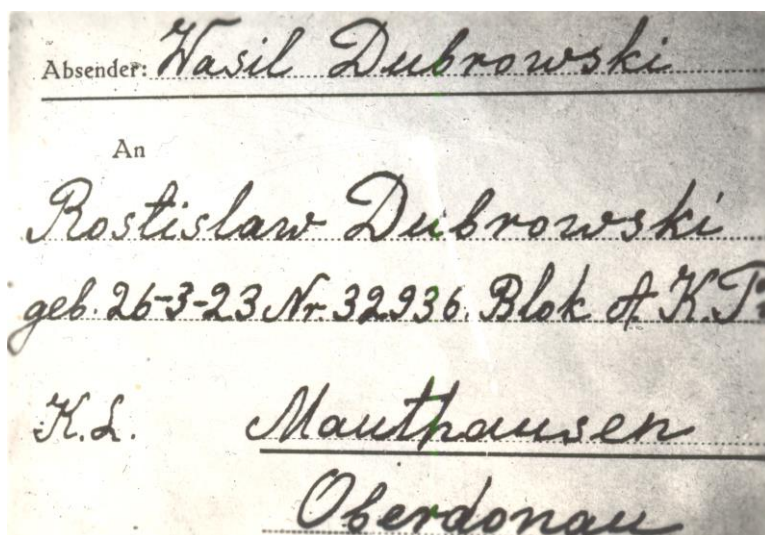 Absender: Wasil Dubrowski
An
Rostislaw Dubrowski
geb. 26-3-23 Nr. 32936. Blok A. K.
K.L. Mauthausen
Oberdonau